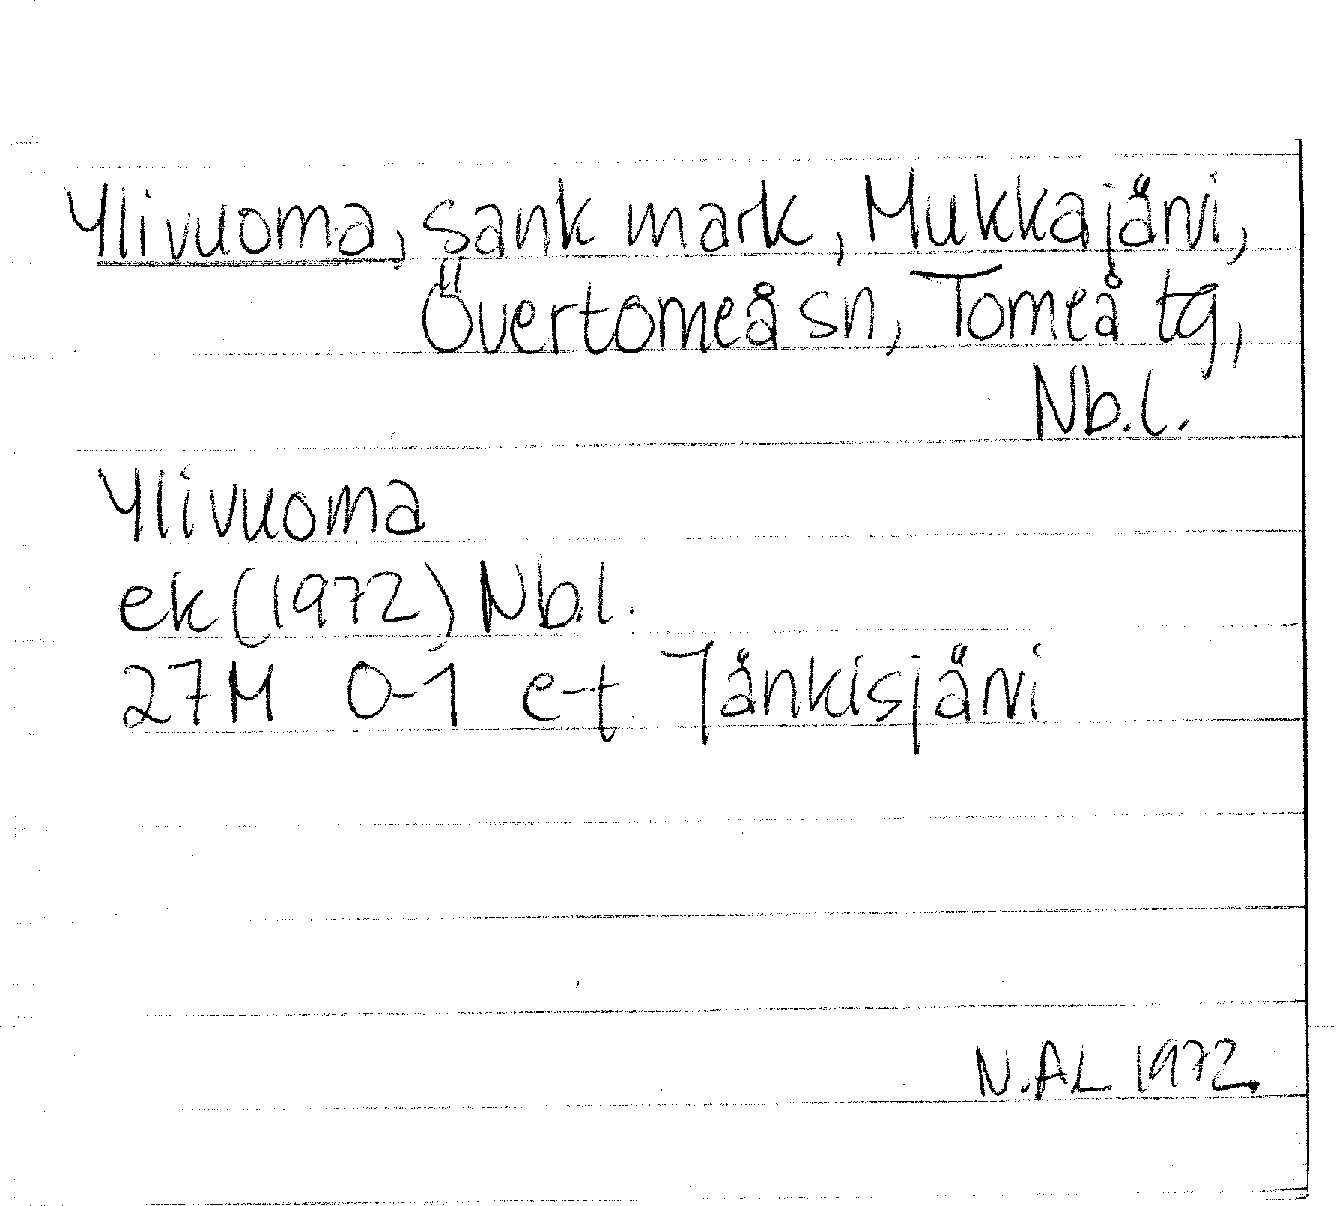 Ylivuoma, sank mark, Mukkajärvi,
Övertorneå sn, Torneå tg,
Nb.l.
Ylivuoma
ek (1972) Nb.l.
27M 0-1 e-t Jänkisjärvi
N.AL 1972